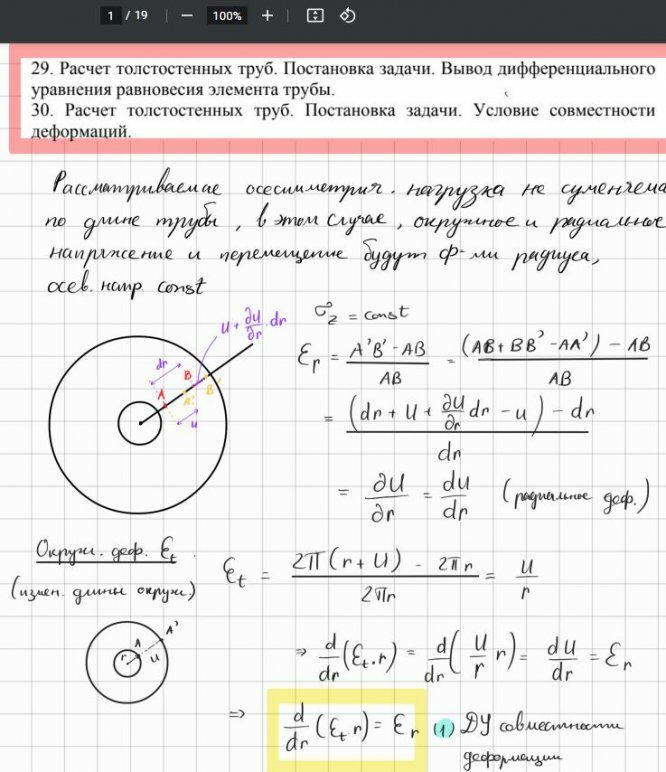 1 / 19 − 100% +
29. Расчет толстостенных труб. Постановка задачи. Вывод дифференциального
уравнения равновесия элемента трубы.
30. Расчет толстостенных труб. Постановка задачи. Условие совместности
деформаций.
Рассматриваемае осесиметрич. нагрузка не
по длине трубы, в этом случае, окружное и радиальное
напряжение и перемещение будут ф-ми радиуса,
осев. напр. const
σz = const
U + ∂U/∂r · dr
dr
A
B
A'
B'
u
εr = (A'B' - AB)/AB = ((AB + BB' - AA') - AB)/AB
= ((dr + U + ∂U/∂r dr - u) - dr)/dr
= ∂U/∂r = dU/dr (радиальное деф.)
Окружн. деф. εt
(измен. длины окружн.)
εt = (2π(r + U) - 2πr)/2πr = u/r
r
A
A'
u
⇒ d/dr (εt·r) = d/dr (U/r r) = dU/dr = εr
⇒ d/dr (εt r) = εr (1) ДУ совместности
деформации